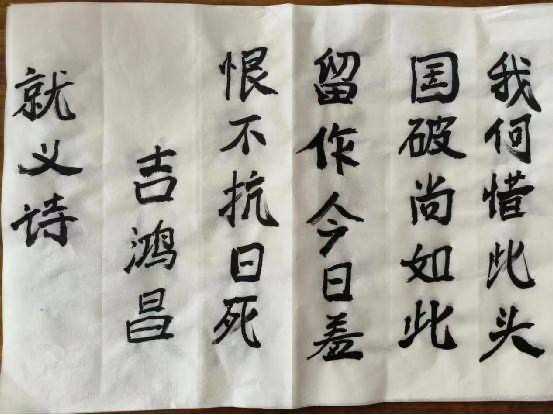 就义诗
吉鸿昌
恨不抗日死
留作今日羞
国破尚如此
我何惜此头